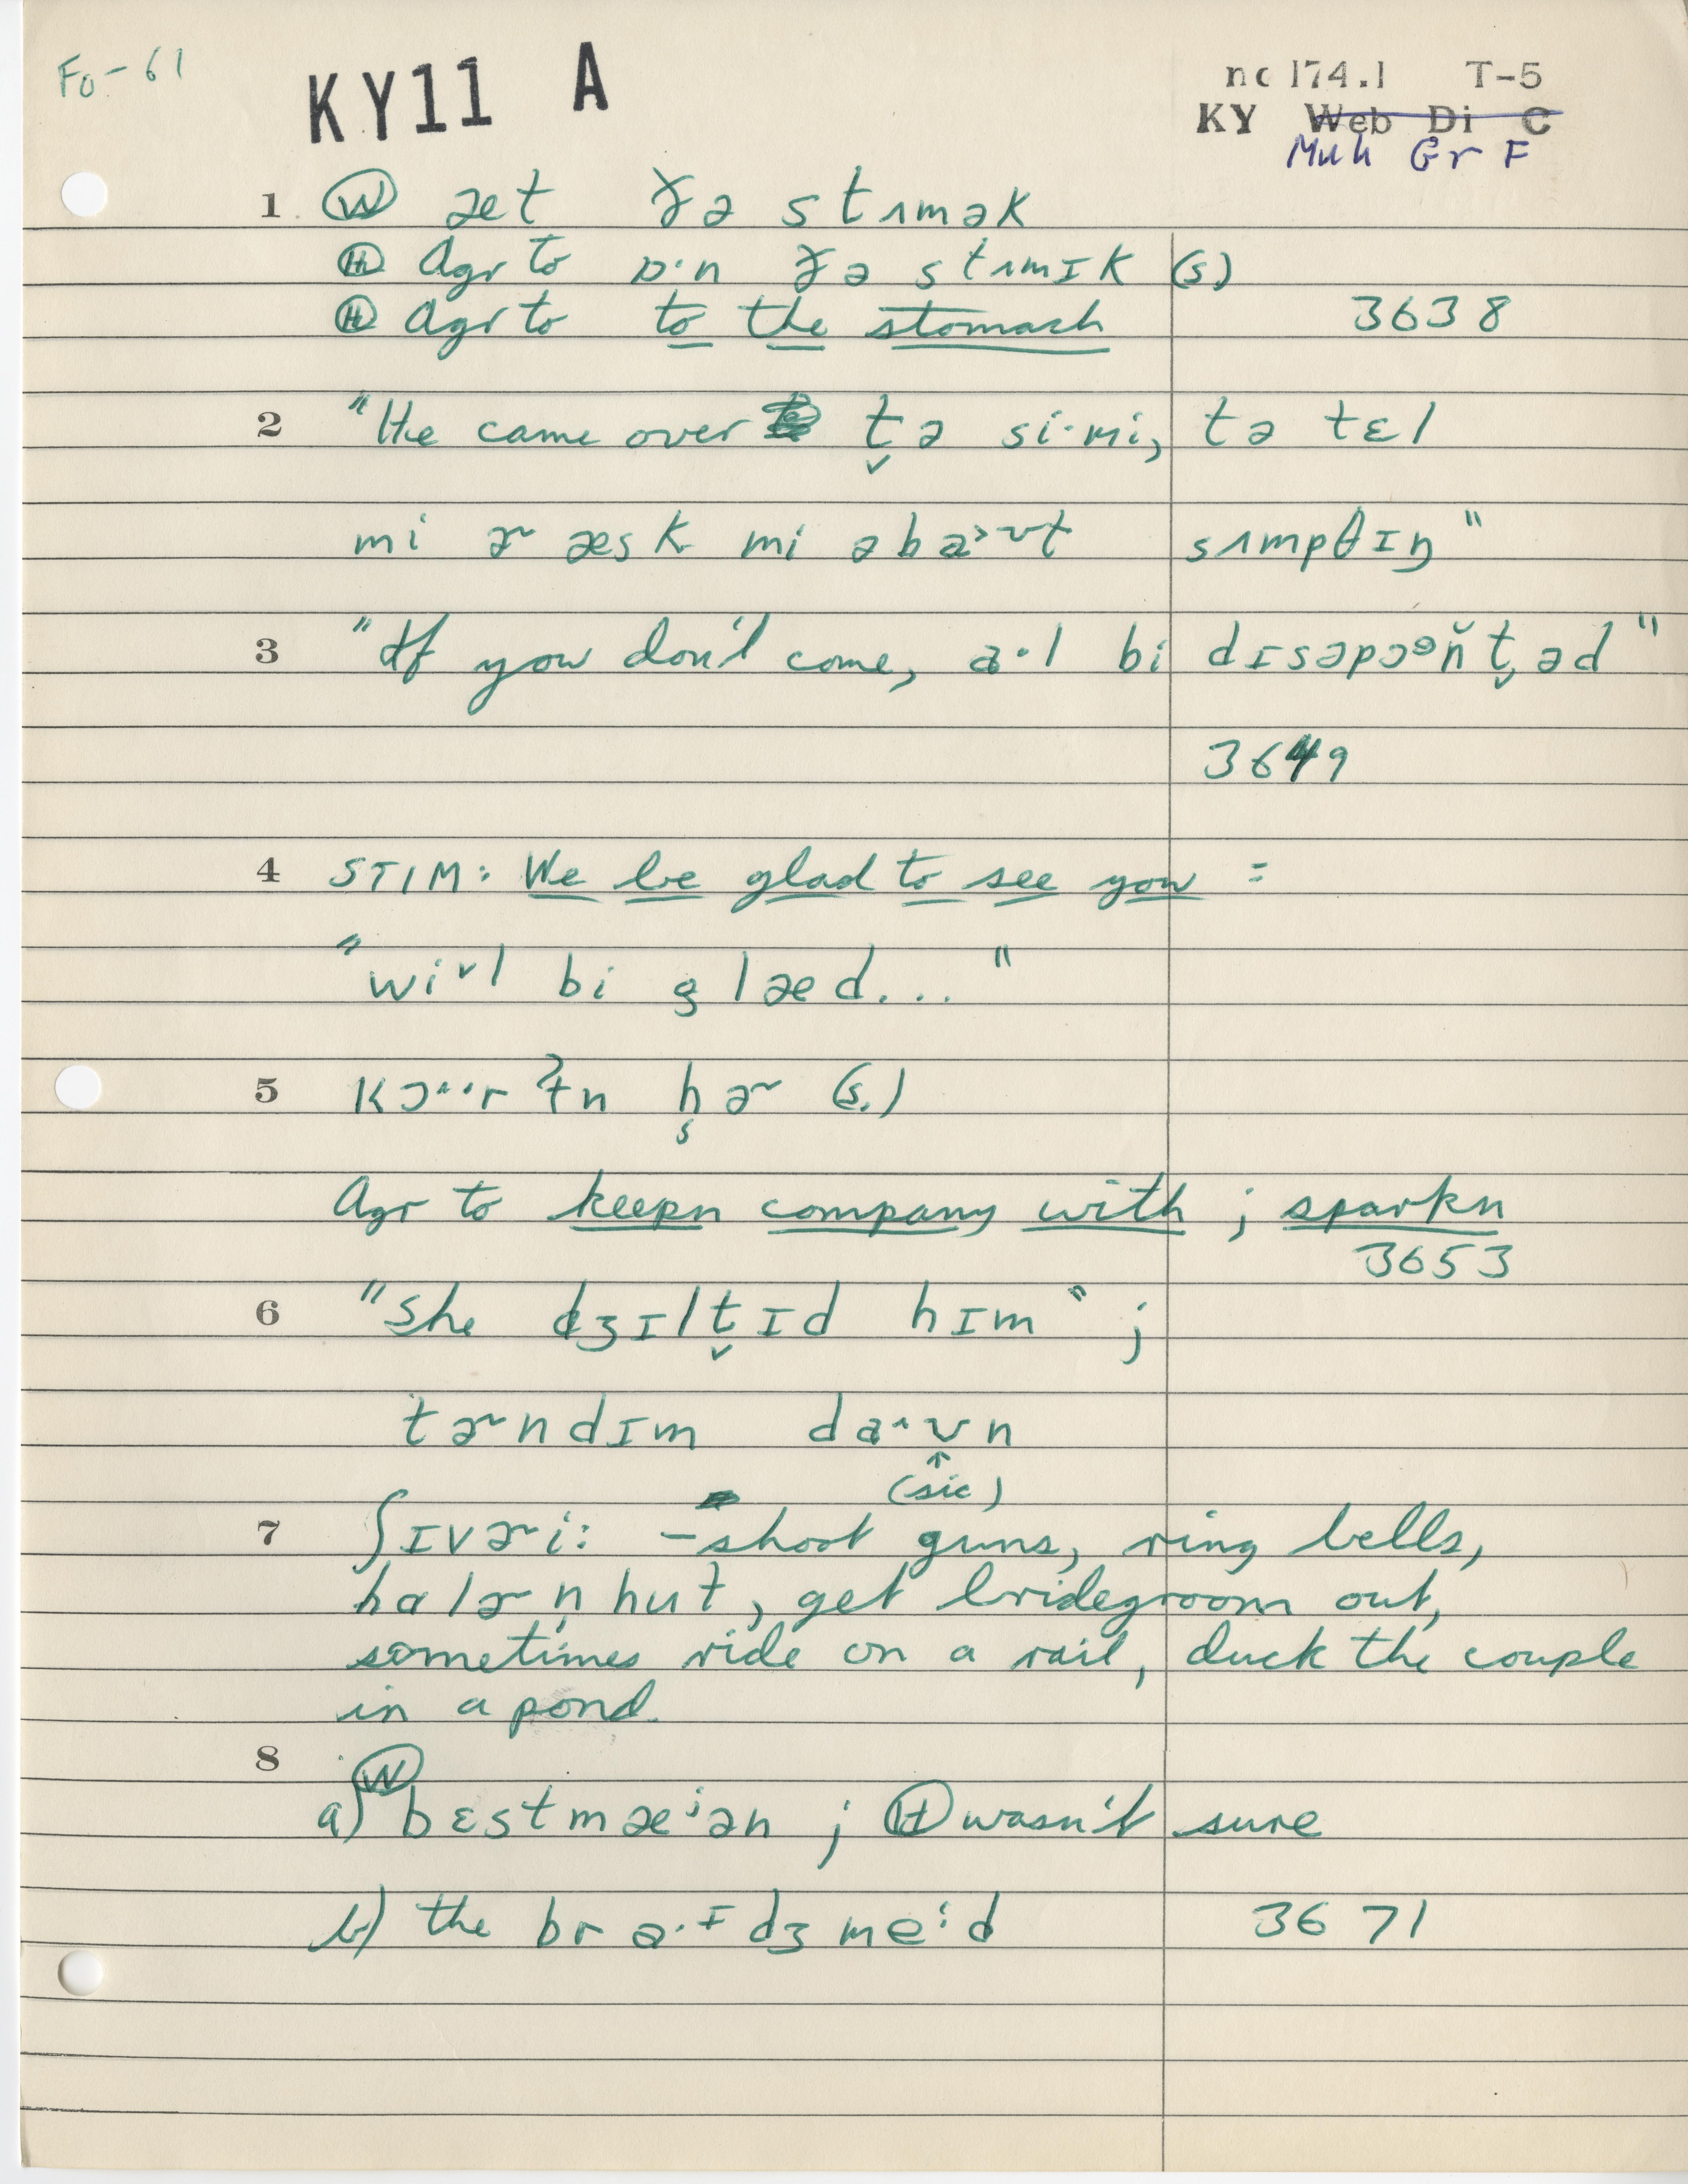 Fo-61
KY11 A
nc 174.1 T-5
KY Web Di C
Muh Gr F
1 Ⓦ æt ðə stʌmək
Ⓗ Agr to ɒ·n ðə stʌmɪk (s)
Ⓗ Agr to to the stomach 3638
2 "He came over t̬ə si·mi, tə tɛl
mi ɚ æsk mi əba˃ʊt sʌmpθɪŋ"
3 "If you don't come, a·l bi dɪsəpɔᵊň t̬əd"
3649
4 STIM: We be glad to see you =
"wi˅l bi glæd..."
5 kɔ··r ʔtn h̬ɚ (s.)
Agr to keepn company with ; sparkn
3653
6 "She dʒɪlt̬ɪd hɪm" ;
tɚndɪm da·^ʊn
(sic)
7 ʃɪvɚi: – shoot guns, ring bells,
halɚ n̩ hut, get bridegroom out,
sometimes ride on a rail, duck the couple
in a pond.
8
a) Ⓦ bɛstmæⁱən ; Ⓗ wasn't sure
b) the bra·ɪdʒmeⁱd 3671